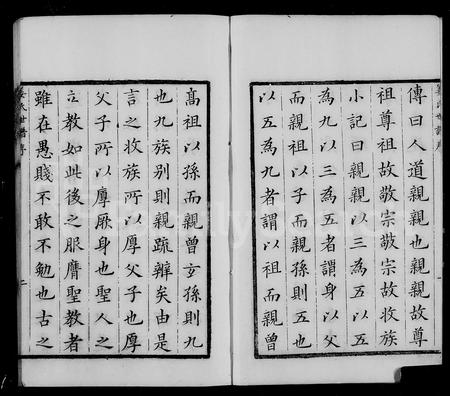 傳曰人道親親也親親故尊
祖尊祖故敬宗敬宗故收族
小記曰親親以三為五以五
為九以三為五者謂身以父
而親祖以子而親孫則五也
以五為九者謂以祖而親曾
高祖以孫而親曾玄孫則九
也九族別則親疏辨矣由是
言之收族所以厚父子也厚
父子所以厚厥身也聖人之
立教如此後之服膺聖教者
雖在愚賤不敢不勉也古之
二